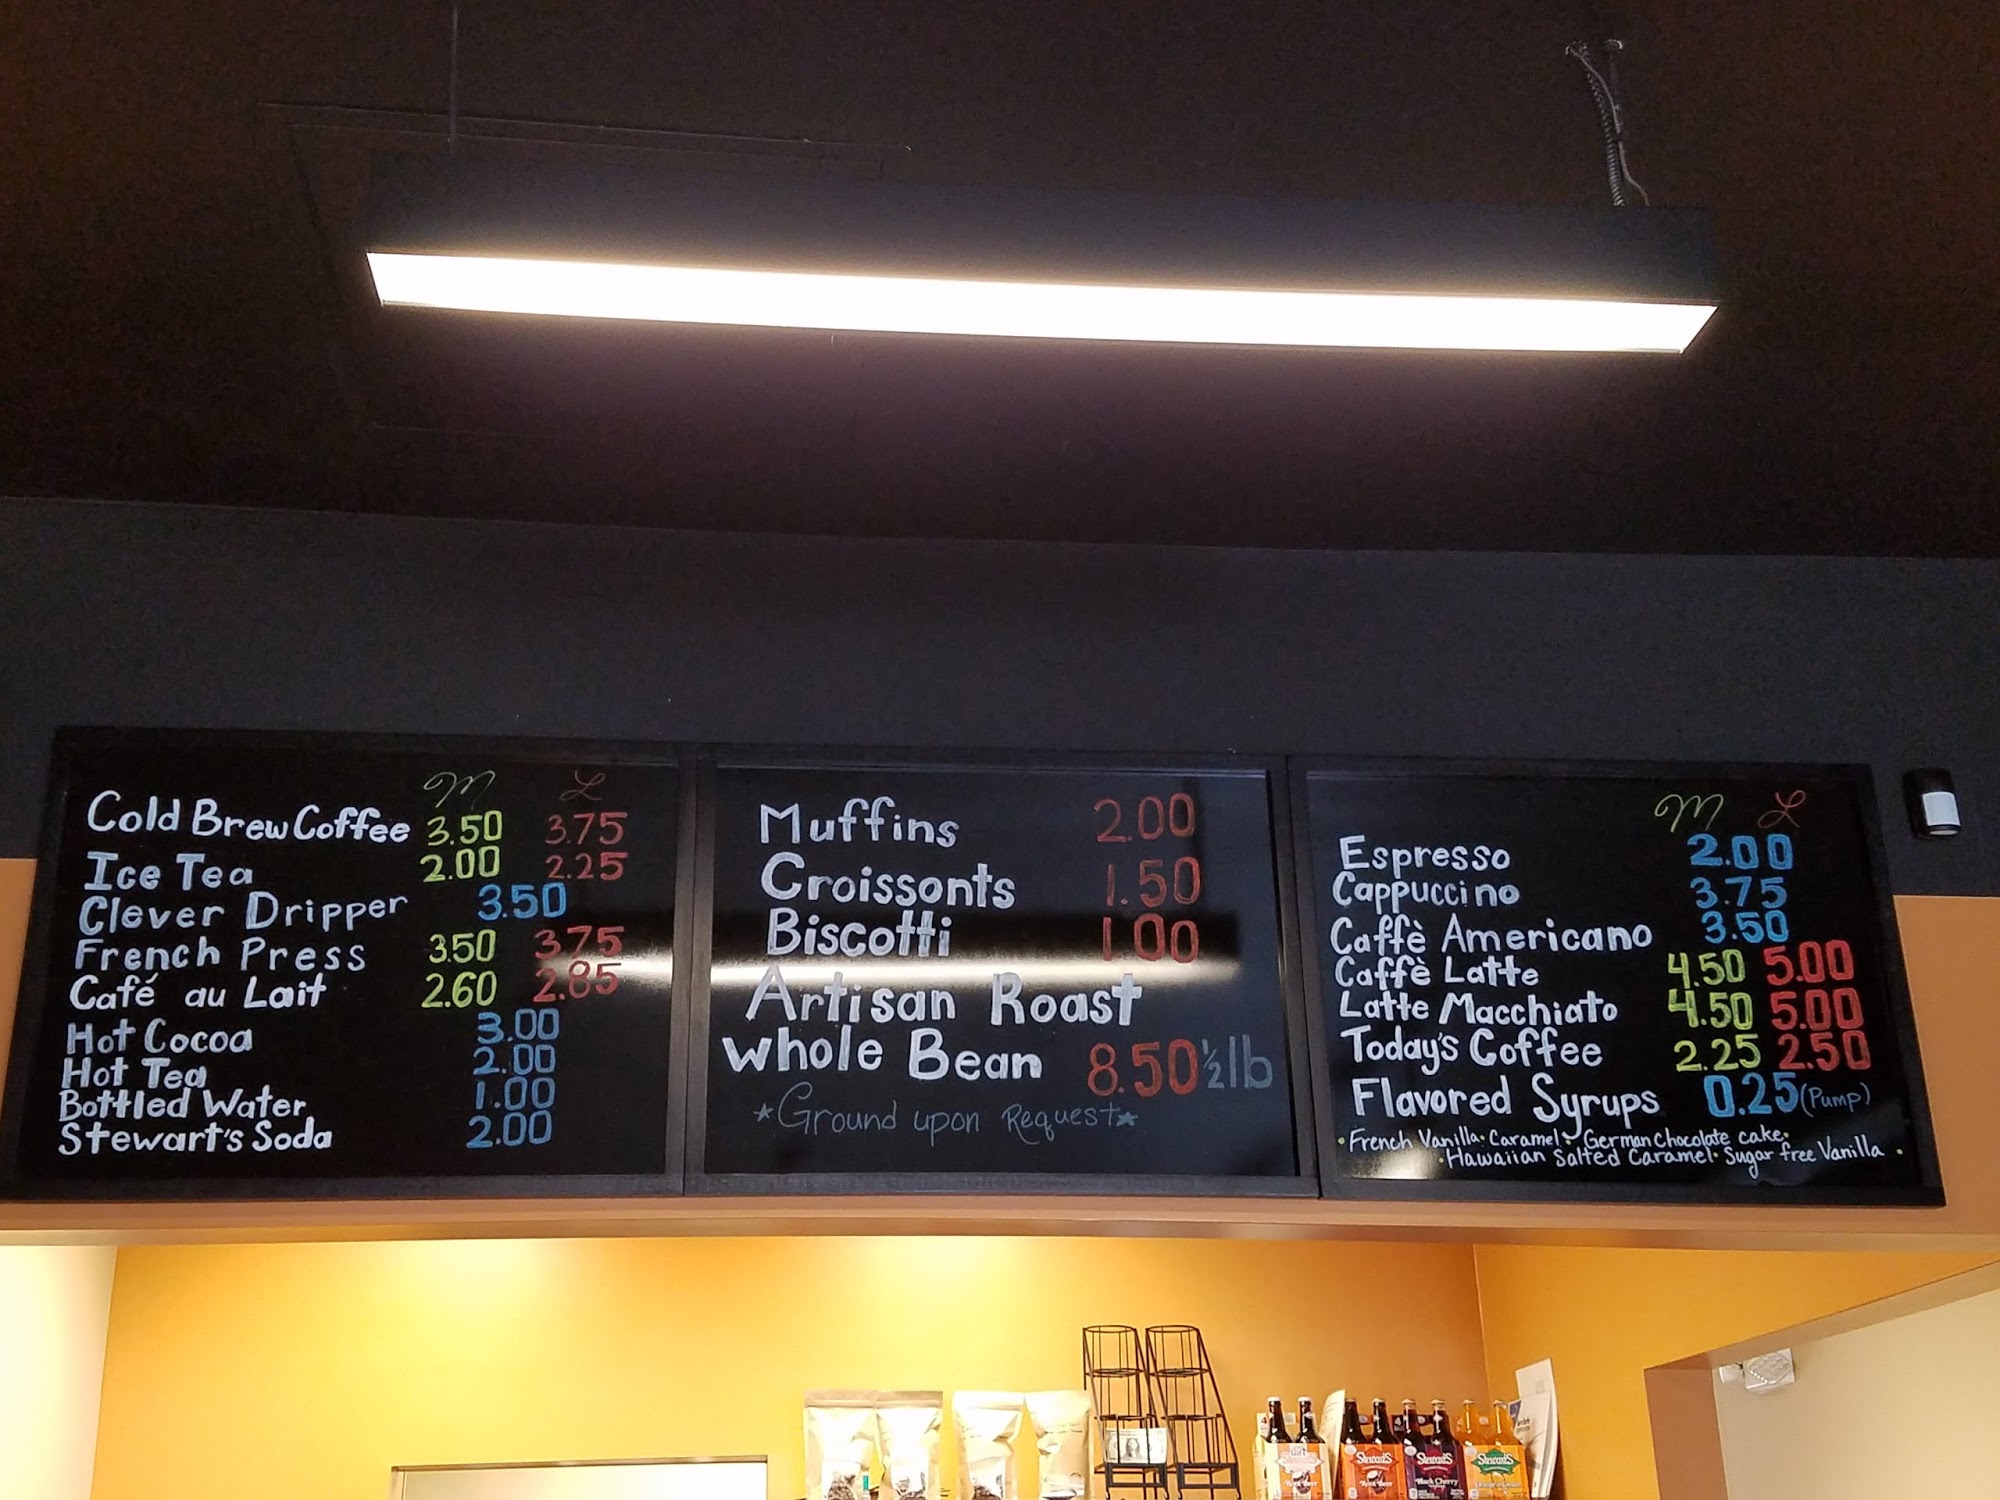 M L
Cold Brew Coffee 3.50 3.75
Ice Tea 2.00 2.25
Clever Dripper 3.50
French Press 3.50 3.75
Café au Lait 2.60 2.85
Hot Cocoa 3.00
Hot Tea 2.00
Bottled Water 1.00
Stewart's Soda 2.00
Muffins 2.00
Croissonts 1.50
Biscotti 1.00
Artisan Roast
whole Bean 8.50 ½ lb
*Ground upon Request*
M L
Espresso 2.00
Cappuccino 3.75
Caffè Americano 3.50
Caffè Latte 4.50 5.00
Latte Macchiato 4.50 5.00
Today's Coffee 2.25 2.50
Flavored Syrups 0.25 (Pump)
• French Vanilla • Caramel • German Chocolate cake •
• Hawaiian Salted Caramel • Sugar free Vanilla •
Stewart's
Root Beer
Stewart's
Black Cherry
Stewart's